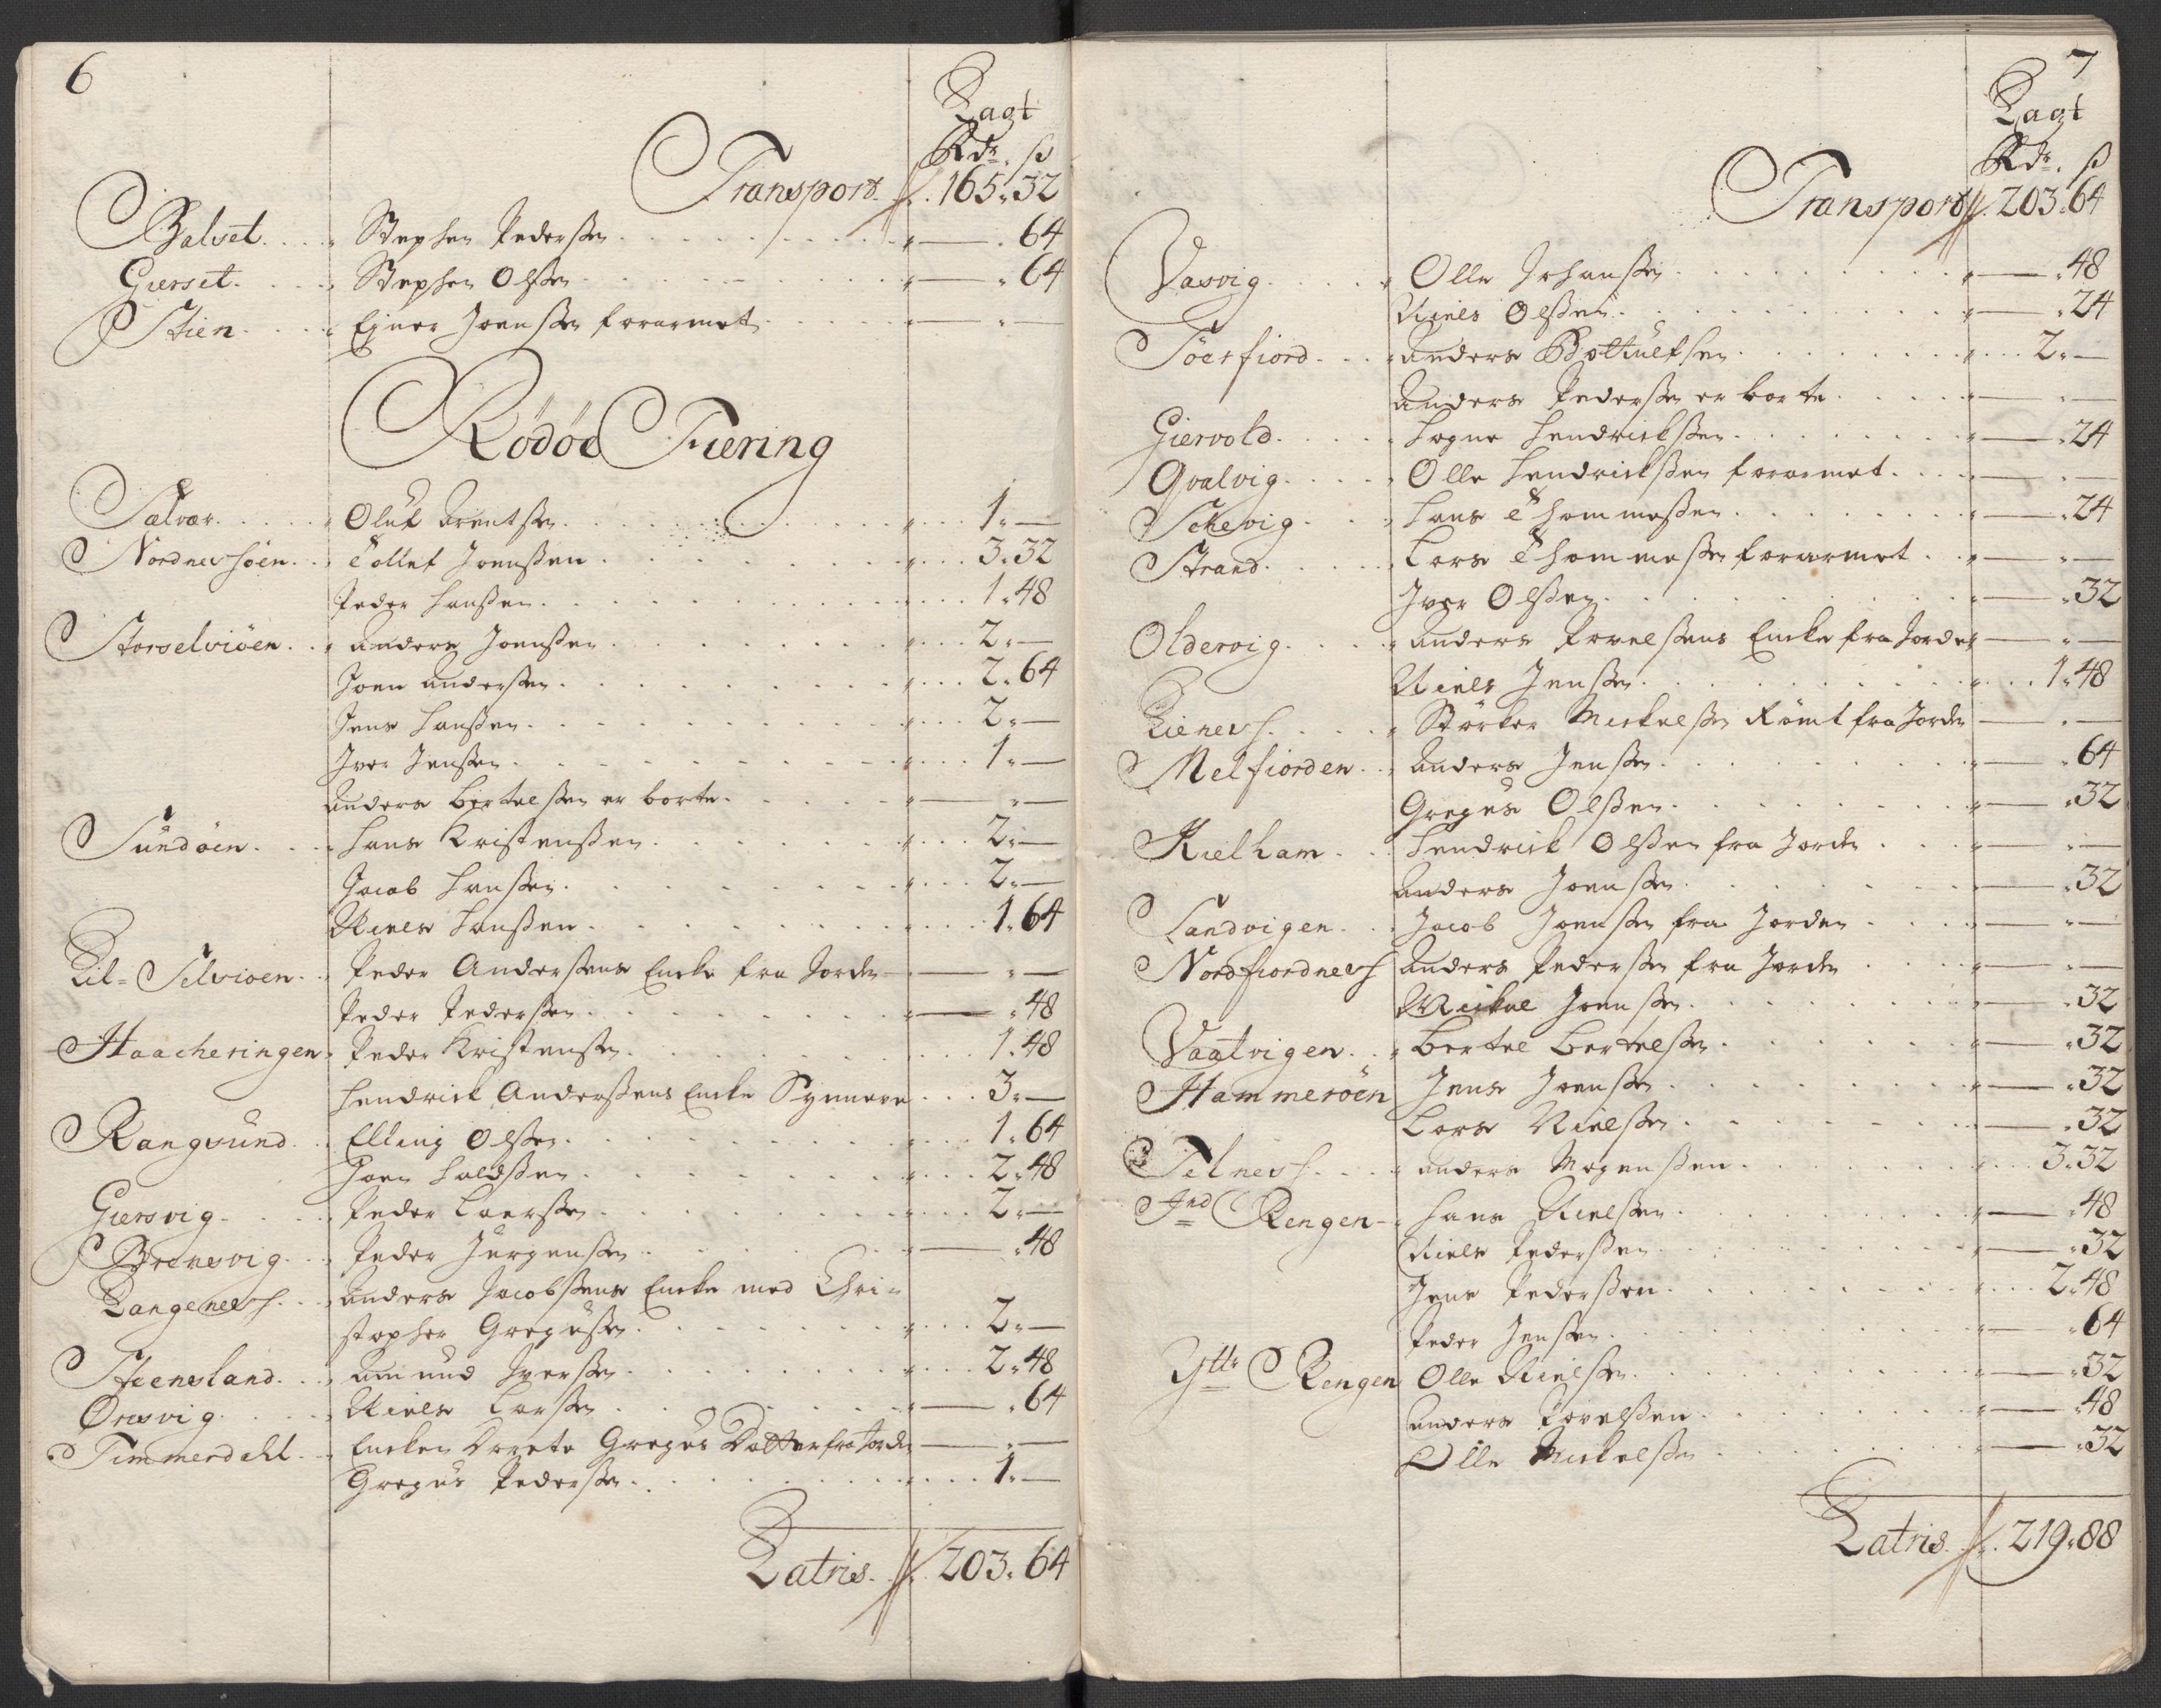 6
Lagt
Rdr. ß
Transport 165 " 32
Balset " Stephen Pederßen " — " 64
Gierset " Stephen Olßen " — " 64
Stien " Ejner Joenßen forarmet " — " —
Rödöe Fiering
Selvær " Oluf Arentßen " 1 " —
Nordnesöen " Tollef Joenßen " 3 " 32
Peder Hanßen " 1 " 48
Storselviöen " Anders Joenßen " 2 " —
Joen Anderßen " 2 " 64
Jens Hanßen " 2 " —
Iver Jenßen " 1 " —
Anders Bertelßen er borte " — " —
Sundöen " Hans Kristenßen " 2 " —
Jacob Hanßen " 2 " —
Niels Hanßen " 1 " 64
Lil=Selvioen " Peder Anderßens Encke fra Jorden " — " —
Peder Pederßen " — " 48
Haacheringen " Peder Kristenßen 1 " 48
Hendrick Anderßens Encke Synnere 3 " —
Rangsund " Elling Olßen " 1 " 64
Joen Haldßen " 2 " 48
Giersvig " Peder Laerßen " 2 " —
Brensvig " Peder Jürgenßen " — " 48
Langenes " Anders Jacobßens Encke med Chri=
stopher Gregusßen " 2 " —
Steensland " Amund Iverßen " 2 " 48
Oresvig " Niels Larßen " — " 64
Timmerdahl " Encken Dorete Gregus Datter fra Jorden — " —
Gregus Pederßen " 1 " —
Latris 203 " 64
7
Lagt
Rdr. ß
Transport 203 " 64
Vasvig " Olle Johanßen " — " 48
Niels Olßen " — " 24
Töersfiord " Anders Bottulfsen " 2 " —
Anders Pederßen er borte " — " —
Giervold " Hogne Hendrickßen " — " 24
Qvalvig " Olle Hendrickßen forarmet " — " —
Schevig " Hans Thommeßen " — " 24
Strand " Lars Thommeßen forarmet " — " —
Iver Olßen " — " 32
Oldervig " Anders Povelßens Encke fra Jorden — " —
Niels Jenßen " 1 " 48
Lienes " Störker Mickelßen Römt fra Jorden — " —
Melfiorden " Anders Jenßen " — " 64
Gregus Olßen " — " 32
Kielham " Hendrick Olßen fra Jorden " — " —
Anders Joenßen " — " 32
Sandvigen " Jacob Joenßen fra Jorden " — " —
Nordfiordnes Anders Pederßen fra Jorden " — " —
Mickel Joenßen " — " 32
Vaatvigen " Bertel Bertelßen " — " 32
Hammeröen Jens Joenßen " — " 32
Lars Nielßen " — " 32
Telnes " Anders Mogenßen " 3 " 32
Ind Rengen " Hans Nielßen " — " 48
Niels Pederßen " — " 32
Jens Pederßen " 2 " 48
Peder Jenßen " — " 64
Yttr Rengen Olle Nielßen " — " 32
Anders Povelßen " — " 48
Olle Mickelßen " — " 32
Latris 219 " 88